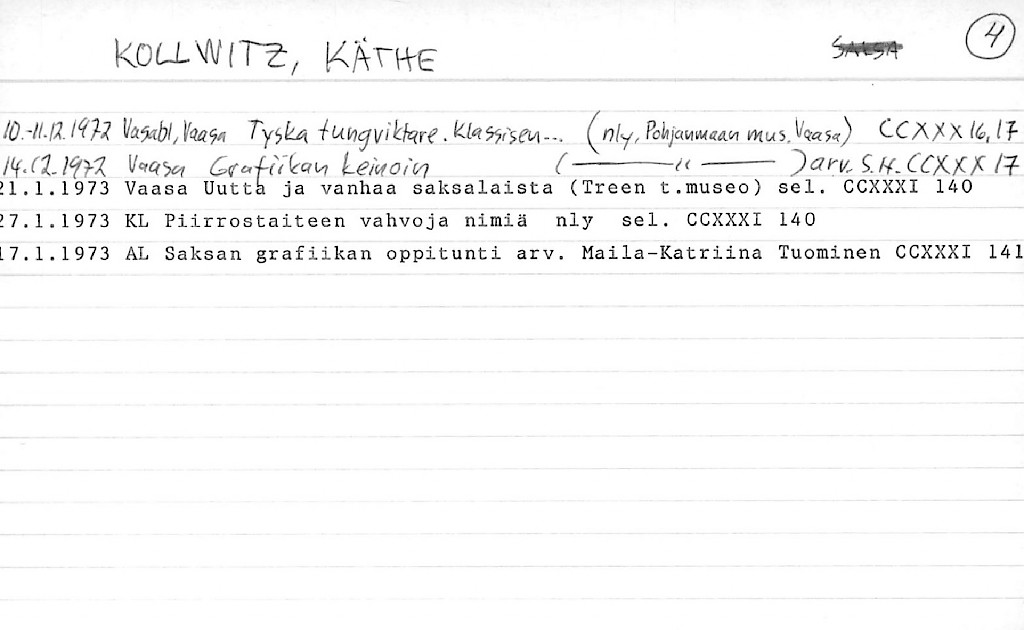 KOLLWITZ, KÄTHE SAKSA 4
10.-11.12.1972 Vasabl, Vaasa Tyska tungviktare. Klassisen... (nly, Pohjanmaan mus. Vaasa) CCXXX 16, 17
14.12.1972 Vaasa Grafiikan keinoin ( —— " —— ) arv. S.H. CCXXX 17
21.1.1973 Vaasa Uutta ja vanhaa saksalaista (Treen t.museo) sel. CCXXXI 140
27.1.1973 KL Piirrostaiteen vahvoja nimiä nly sel. CCXXXI 140
17.1.1973 AL Saksan grafiikan oppitunti arv. Maila-Katriina Tuominen CCXXXI 141